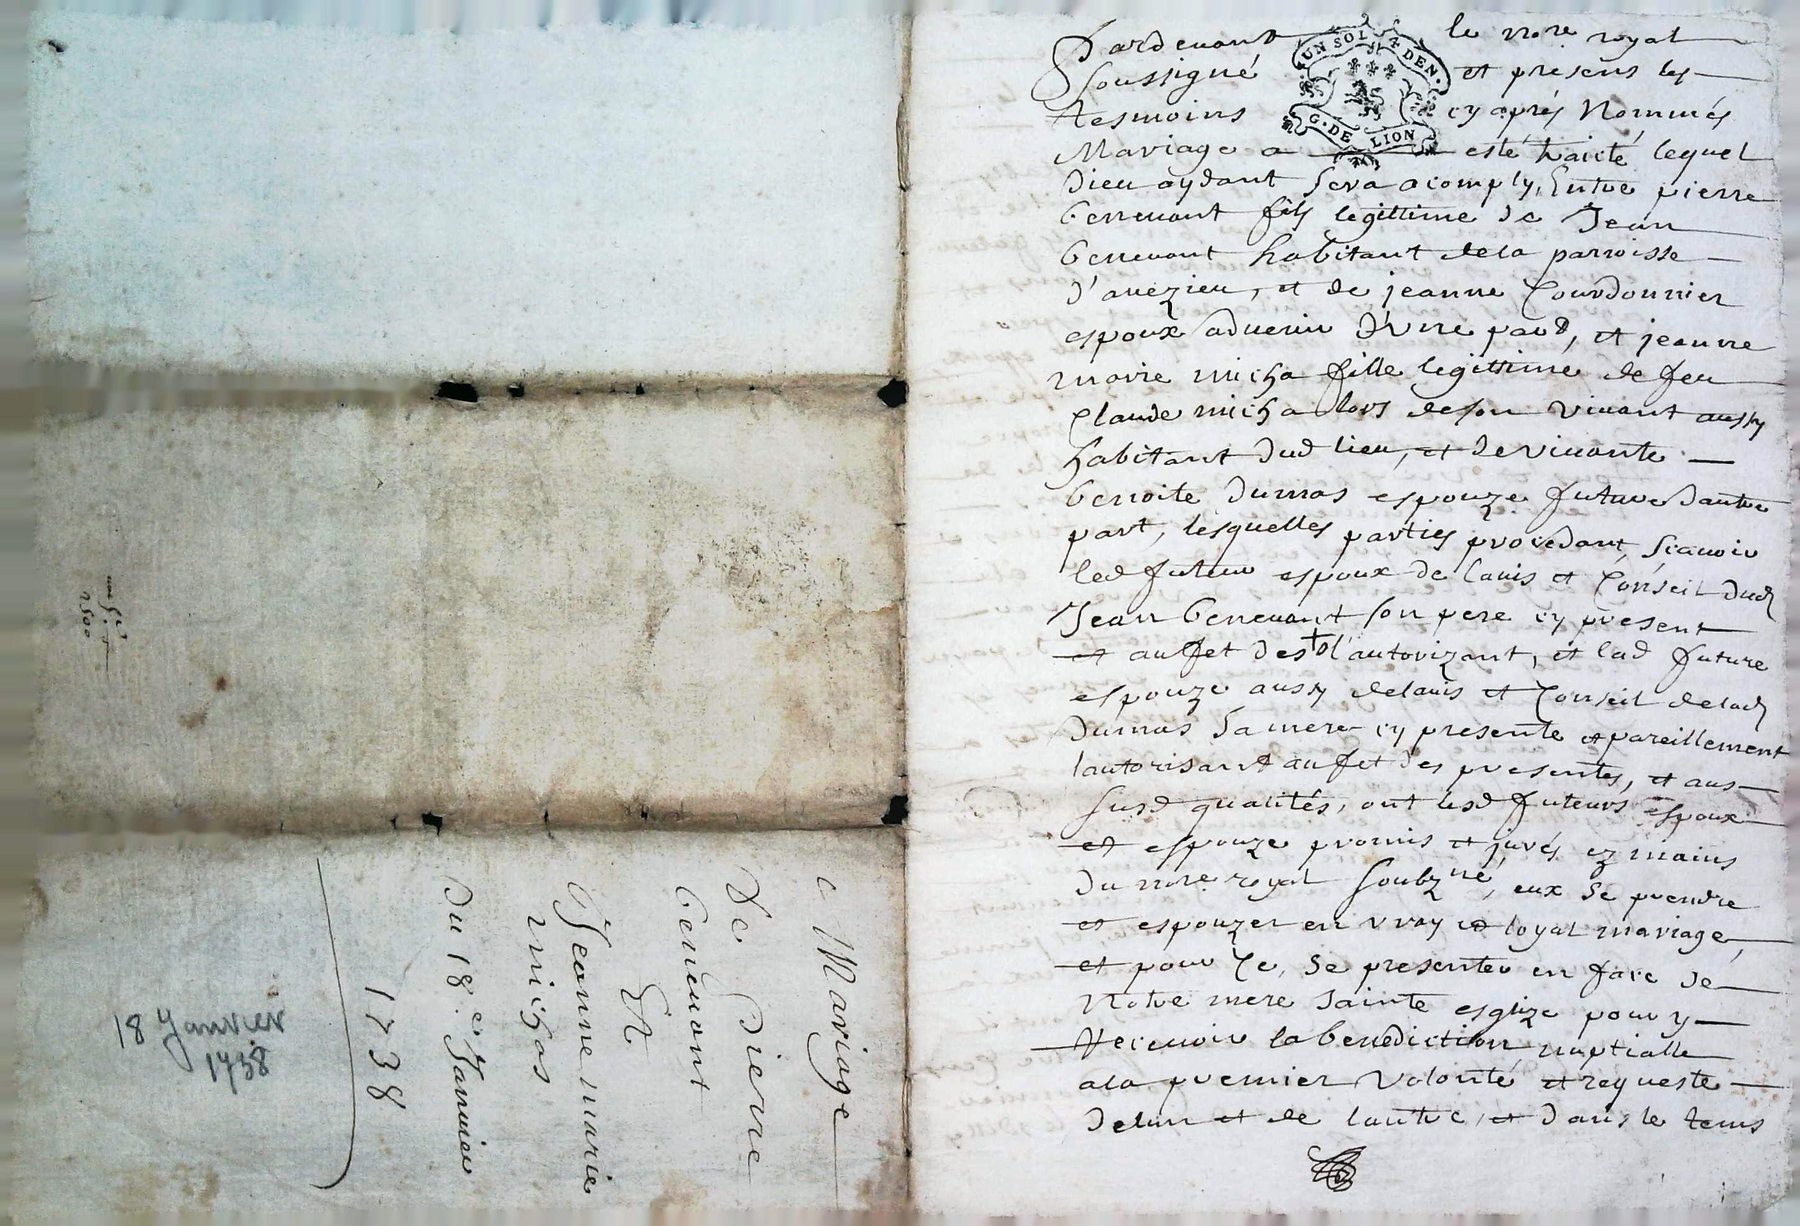 un sol 4 den.
G. de Lion
Pardevant le nore royal
soussigné et presens les
tesmoins cy aprés Nommés
Mariage a esté traité lequel
Dieu aydant sera acomply, Entre pierre
benevant fils legittime de Jean
benevant habitant dela parroisse
d'avezieu, et de jeanne Courdonnier
espoux advenir d'Vne part, et jeanne
marie micha fille legittime de feu
Claude micha lors deson vivant aussy
habitant dud lieu, et de vivante
benoite dumas espouze future dautre
part, lesquelles parties procedant, scavoir
led futeur espoux de lavis et Conseil dud
Jean benevant son pere cy present
et aufet des + l'autorizant, et lad future
espouze aussy delavis et Conseil delad
dumas sa mere cy presente et pareillement
lautorisant aufet des presentes, et aus
susd qualités, ont lesd futeurs espoux
et espouze promis et jurés ez mains
du nore royal soubzné, eux se prendre
et espouzer en vray et loyal mariage,
et pour Ce, se presenter en face de
Notre mere sainte esglize pour y
Recevoir la benediction nuptialle
ala premier volonté et requeste
delun et de lautre, et dans le tems
Mariage
De Pierre
benevant
Et
Jeanne marie
michas
Du 18.e Janvier
1738
18 Janvier
1738
2500